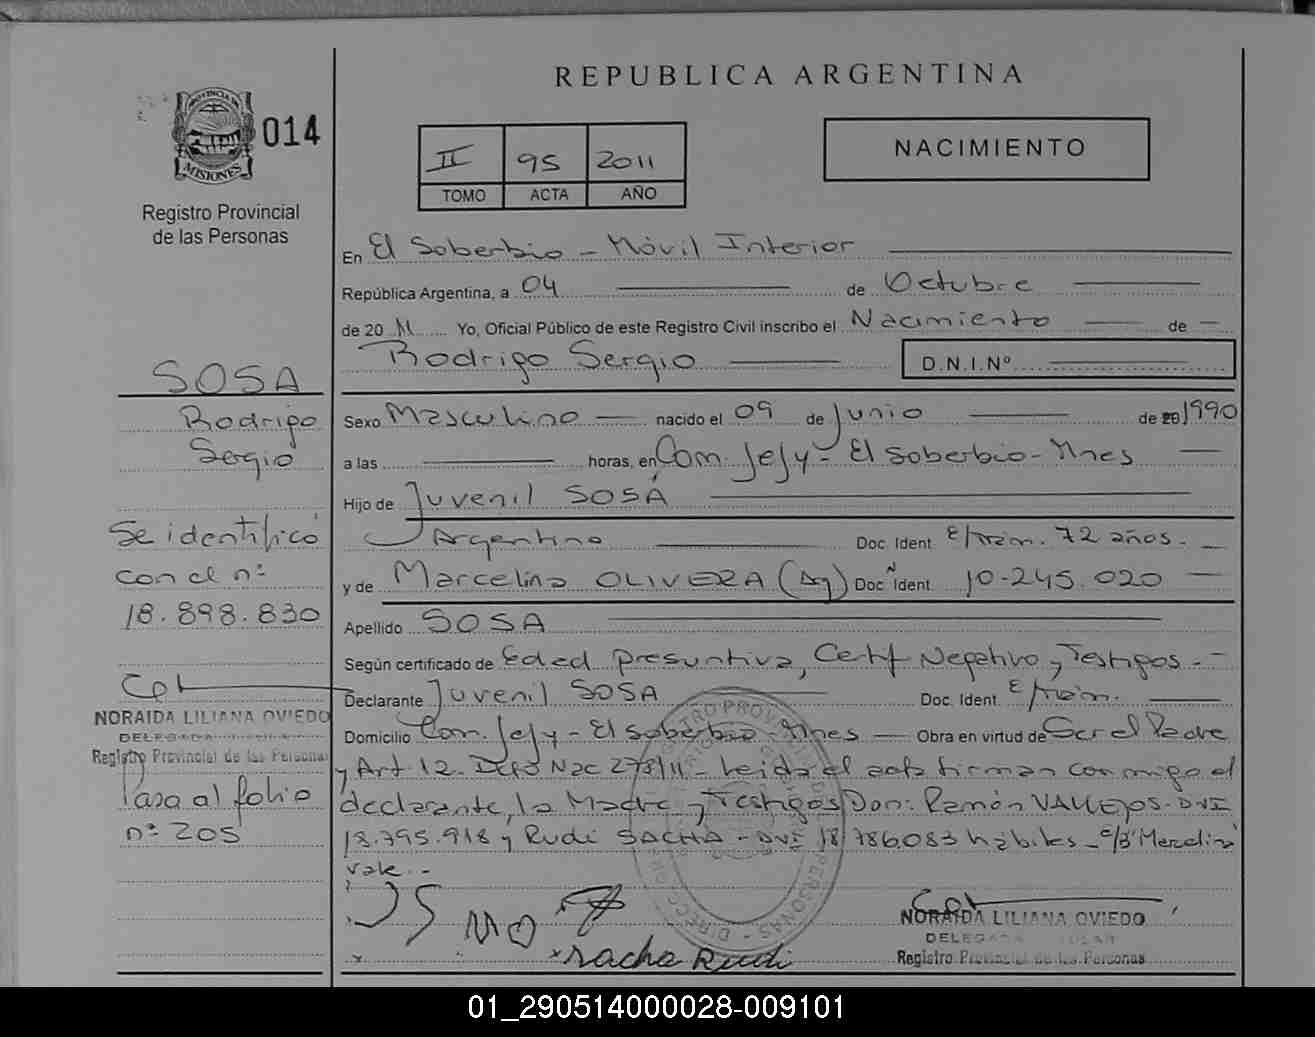 REPUBLICA ARGENTINA
PROVINCIA DE
MISIONES
014
Registro Provincial
de las Personas
II 95 2011
TOMO ACTA AÑO
NACIMIENTO
En El Soberbio - Móvil Interior
República Argentina, a 04 de Octubre
de 2011 Yo, Oficial Público de este Registro Civil inscribo el Nacimiento de
Rodrigo Sergio D.N.I.Nº
Sexo Masculino nacido el 09 de Junio de 1990
a las horas, en Com. Jejy - El Soberbio - Mnes
Hijo de Juvenil SOSA
Argentino Doc. Ident. E/trám. 72 años.
y de Marcelina OLIVERA (Ag) Doc. Ident. 10.245.020
Apellido SOSA
Según certificado de Edad presuntiva, Certif Negativo y Testigos.-
Declarante Juvenil SOSA Doc. Ident. E/trám.
Domicilio Com. Jejy - El Soberbio - Mnes Obra en virtud de Ser el Padre
y Art 12. Dcto Nac 278/11 - Leida el acta firman conmigo el
declarante, la Madre y Testigos Don: Ramón VALLEJOS - DNI
18.795.918 y Rudi SACHA - DNI 18 786.083 habiles -
vale.-
JS MO
Sacha Rudi
NORAIDA LILIANA OVIEDO
DELEGADA
Registro Provincial de las Personas
SOSA
Rodrigo
Sergio
Se identificó
con el nº
18.898.830
NORAIDA LILIANA OVIEDO
DELEGADA
Registro Provincial de las Personas
Pasa al folio
nº 205
01_290514000028-009101